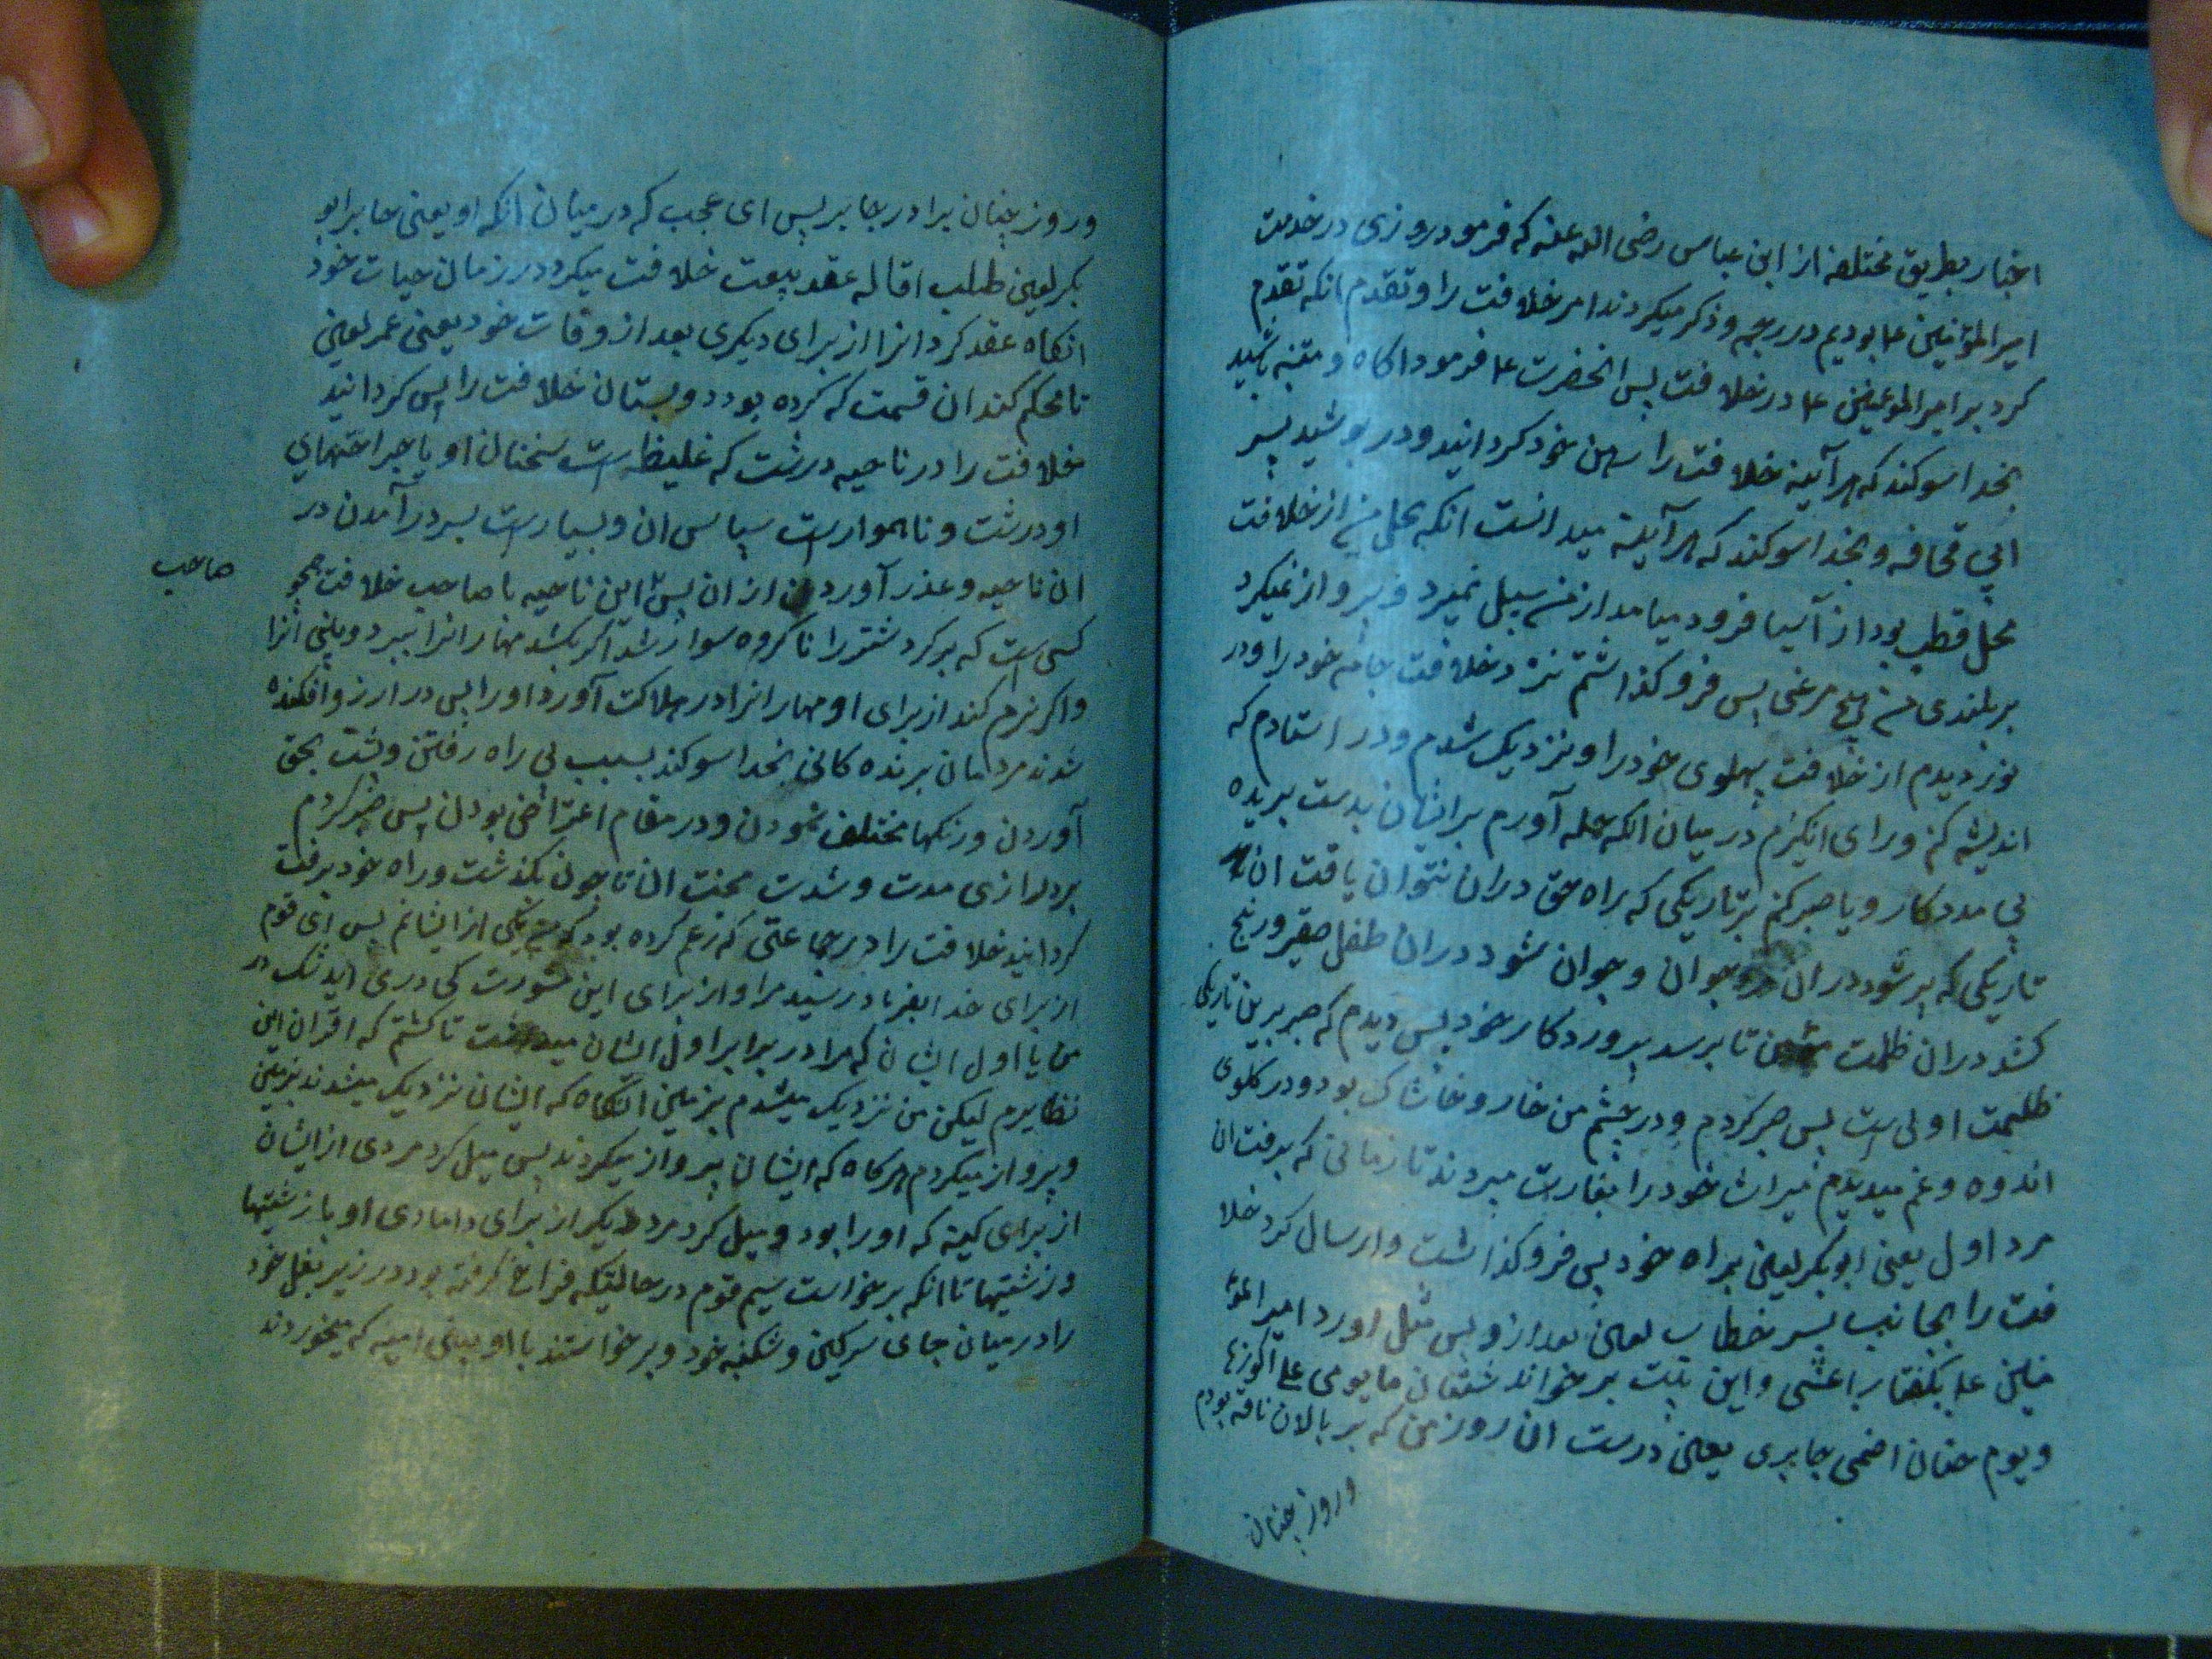 اخبار بطریق مختلفه از ابن عباس رضی الله عنه که فرمود روزی در خدمت
امیر المؤمنین ع بودیم در رحبه و ذکر میکردند امر خلافت را و تقدم انکه تقدم
کرد بر امیر المومنین ع در خلافت پس انحضرت ع فرمود اکاه و متنبه باشید
بخدا سوکند که هر آینه خلافت را پیراهن خود کردانید و در پوشید پسر
ابی قحافه و بخدا سوکند که هر آینه میدانست انکه محل من از خلافت
محل قطب بود از آسیا فرود میامد از من سیل نمیرد و پرواز نمیکرد
بر بلندی من هیچ مرغی پس فرو کذاشتم نزد خلافت جامه خود را و در
نوردیدم از خلافت پهلوی خود را و نزدیک شدم و در استادم که
اندیشه کنم و رای انکیزم در میان انکه حمله آورم بر ایشان بدست بریده
بی مددکار و یا صبر کنم بر تاریکی که براه حق دران نتوان یافت ان
تاریکی که پر شود دران جوان و جوان شود دران طفل صغیر و رنج
کشد دران ظلمت مؤمن تا برسد پروردکار خود پس دیدم که صبر برین تاریکی
ظلمت اولی است پس صبر کردم و در چشم من خار و خاشاک بود و در کلوی
اندوه و غم میدیدم میراث خود را بغارت میبردند تا زمانی که برفت ان
مرد اول یعنی ابو بکر لعین براه خود پس فرو کذاشت و ارسال کرد خلا
فت را بجانب پسر خطاب لعین بعد از و پس مثل اورد امیر المؤ
منین ع بکفتار اعشی و این بیت بر خواند شتان ما یومی علی اکورها
و یوم حنان اخی جابری یعنی درست ان روز من که بر بالان ناقه بودم
و روز چنان
و روز چنان برادر جابر پس ای عجب که در میان انکه او یعنی جابر ابو
بکر لعین طلب اقاله عقد بیعت خلافت میکرد در زمان حیات خود
انکاه عقد کرد انرا از برای دیکری بعد از وفات خود یعنی عمر لعین
تا محکم کند ان قسمت که کرده بود دو پستان خلافت را پس کردانید
خلافت را در ناحیه درشت که غلیظ است سخنان او یا جراحتهای
او درشت و ناهموار است سپاس ان و بسیار است بسر درآمدن در
ان ناحیه و عذر آوردن از ان پس این ناحیه یا صاحب خلافت همچو
صاحب
کسی است که بر کرد شتر را نا کروه سوار شد اکر بکشد مهار انرا ببرد و بینی انرا
و اکر نرم کند از برای او مهار انرا در هلاکت آورد او را پس در ارز و افکنده
شدند مردمان برنده کانی بخدا سوکند بسبب بی راه رفتن و پشت بحق
آوردن و رنکها مختلف نمودن و در مقام اعتراض بودن پس صبر کردم
بر درازی مدت و شدت محنت ان تا چون بکذشت و راه خود برفت
کردانید خلافت را در جماعتی که زعم کرده بود که من یکی از ایشانم پس ای قوم
از برای خدا بفریاد رسید مرا و از برای این مشورت کی در می اید شک در
من با اول ایشان که مرا در برابر اول ایشان میداشت تا کشتم که اقران این
نظایرم لیکن من نزدیک میشدم بزمین انکاه که ایشان نزدیک میشدند بزمین
و پرواز میکردم هرکاه که ایشان پرواز میکردند پس میل کرد مردی از ایشان
از برای کینه که او را بود و میل کرد مرد دیکر از برای دامادی او با زشتیها
و زشتیها تا انکه برخواست سیم قوم در حالتیکه فراخ کرفته بود در زیر بغل خود
را در میان جای سرکین و شکنبه خود و برخواستند با او بنی امیه که میخوردند